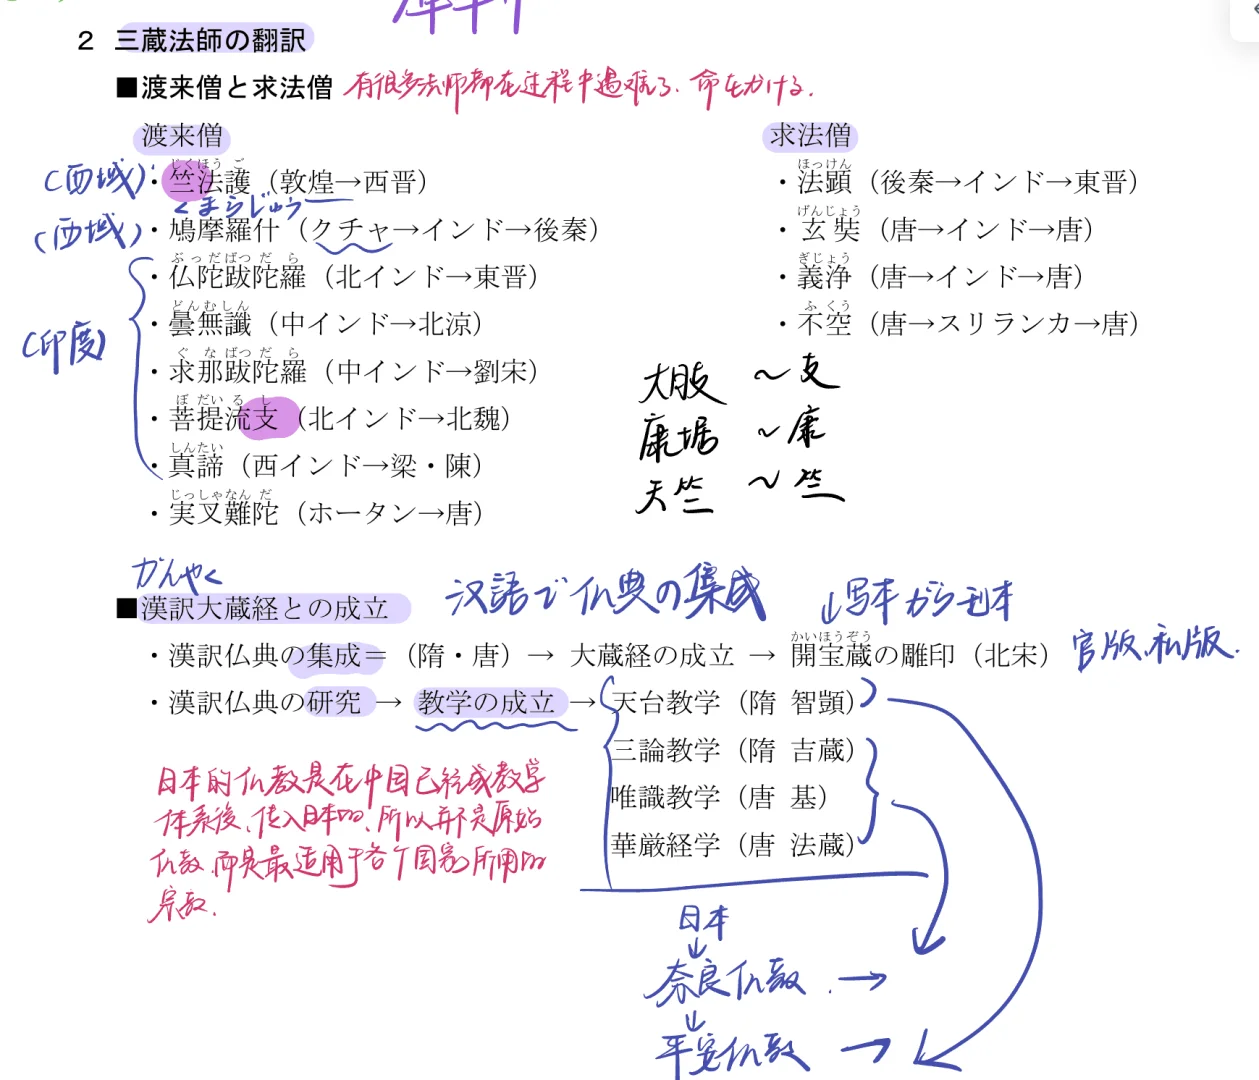 2 三蔵法師の翻訳
■渡来僧と求法僧 有很多法师都在过程中遇难了、命をかける.
渡来僧
(西域)・竺法護（敦煌→西晋）
じくほうご
くまらじゅう
(西域)・鳩摩羅什（クチャ→インド→後秦）
ぶっだばつだら
・仏陀跋陀羅（北インド→東晋）
どんむしん
・曇無讖（中インド→北涼）
(印度)
ぐなばつだら
・求那跋陀羅（中インド→劉宋）
ぼだいるし
・菩提流支（北インド→北魏）
しんたい
・真諦（西インド→梁・陳）
じっしゃなんだ
・実叉難陀（ホータン→唐）
求法僧
ほっけん
・法顕（後秦→インド→東晋）
げんじょう
・玄奘（唐→インド→唐）
ぎじょう
・義浄（唐→インド→唐）
ふくう
・不空（唐→スリランカ→唐）
大月支 〜支
康居 〜康
天竺 〜竺
かんやく
■漢訳大蔵経との成立 汉語で仏典の集成 ↓写本から刊本
かいほうぞう
・漢訳仏典の集成＝（隋・唐）→ 大蔵経の成立 → 開宝蔵の雕印（北宋） 官版、私版.
・漢訳仏典の研究 → 教学の成立 → 天台教学（隋 智顗）
三論教学（隋 吉蔵）
唯識教学（唐 基）
華厳経学（唐 法蔵）
日本的仏教是在中国已经成教学
体系後、传入日本的、所以并不是原始
仏教、而是最适用于各个国家所用的
宗教.
日本
↓
奈良仏教 . →
↓
平安仏教 →